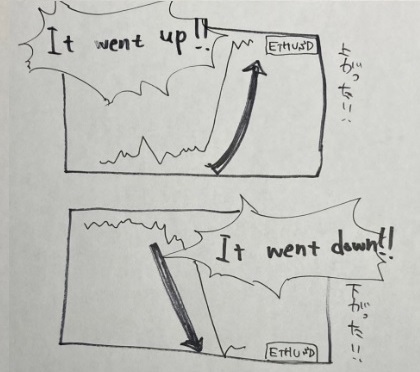 It went up!!
ETHUSD
上がった!!
It went down!!
下がった!!
ETHUSD